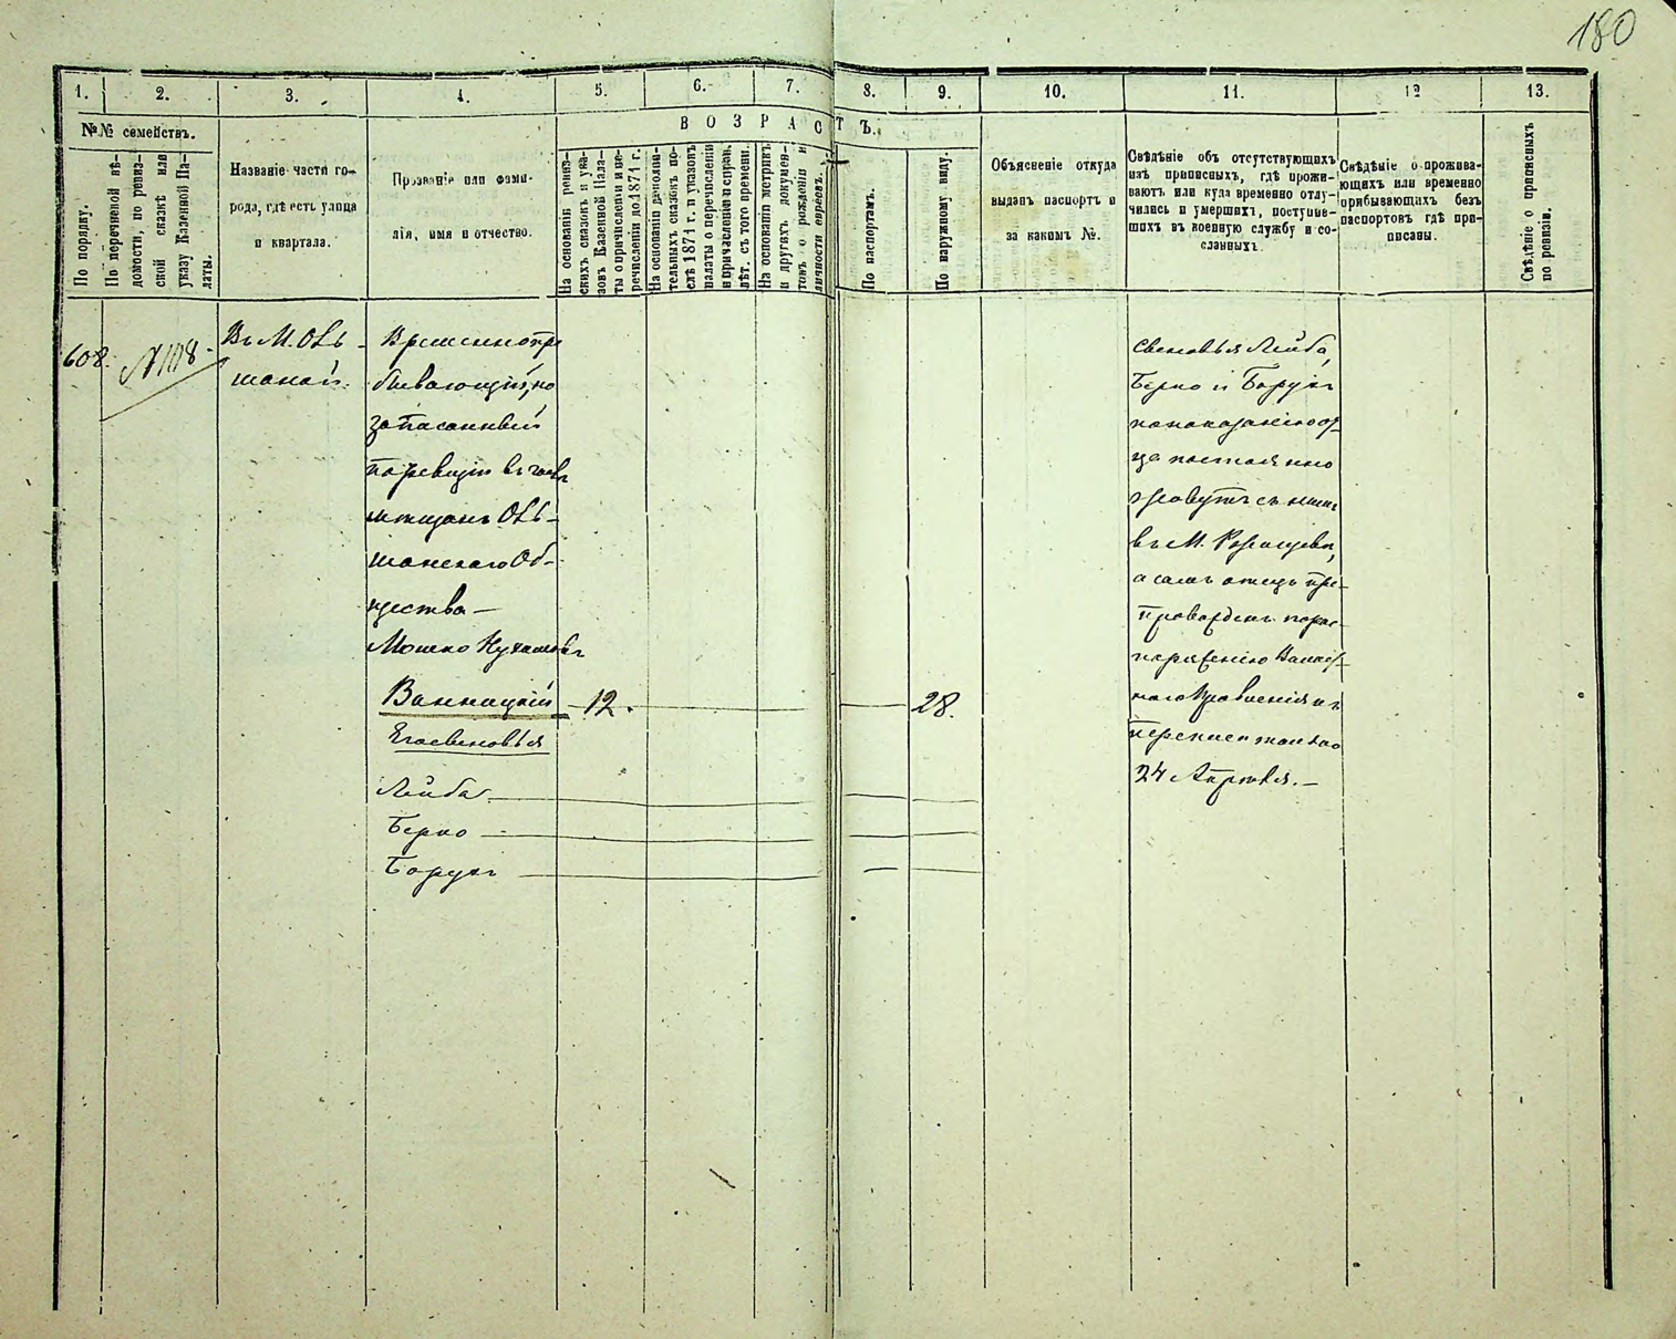 180
1. 2. 3. 4. 5. 6. 7. 8. 9. 10. 11. 12 13.
№№ семействъ.
В О З Р А С Т Ъ.
По порядку.
По перечневой вѣ-
домости, по ревиз-
ской сказкѣ или
указу Казенной Па-
латы.
Названіе части го-
рода, гдѣ есть улица
и квартала.
Прозваніе или фами-
лія, имя и отчество.
На основаніи ревиз-
скихъ сказокъ и ука-
зовъ Казенной Пала-
ты о причисленіи и пе-
речисленіи до 1871 г.
На основаніи дополни-
тельныхъ сказокъ по-
слѣ 1871 г. и указовъ
палаты о перечисленіи
и причисленіи и справ.
лѣт. съ того времени.
На основаніи метрикъ
и другихъ докумен-
товъ о рожденіи и
личности евреевъ.
По паспортамъ.
По наружному виду.
Объясненіе откуда
выданъ паспортъ и
за какимъ №.
Свѣдѣніе объ отсутствующихъ
изъ приписныхъ, гдѣ прожи-
ваютъ или куда временно отлу-
чились и умершихъ, поступив-
шихъ въ военную службу и со-
сланныхъ.
Свѣдѣніе о прожива-
ющихъ или временно
прибывающихъ безъ
паспортовъ гдѣ при-
писаны.
Свѣдѣніе о приписныхъ
по ревизіи.
608. №108
Въ М. Оль-
шаной.
Временнопре
бывающій, но
записанный
по ревизіи въ
мѣщанъ Оль-
шанскаго Об-
щества —
Мошко
Ванницкій 12. 28.
Егосыновья
Лейба
Берко
Борухъ
Сыновья Лейба,
Берко и Борухъ
по показанію от-
ца постоянно
живутъ съ нимъ
въ М.
а самъ отецъ пре-
провожденъ по рас-
поряженію
наго Правленія къ
переписи только
24 Апрѣля. —